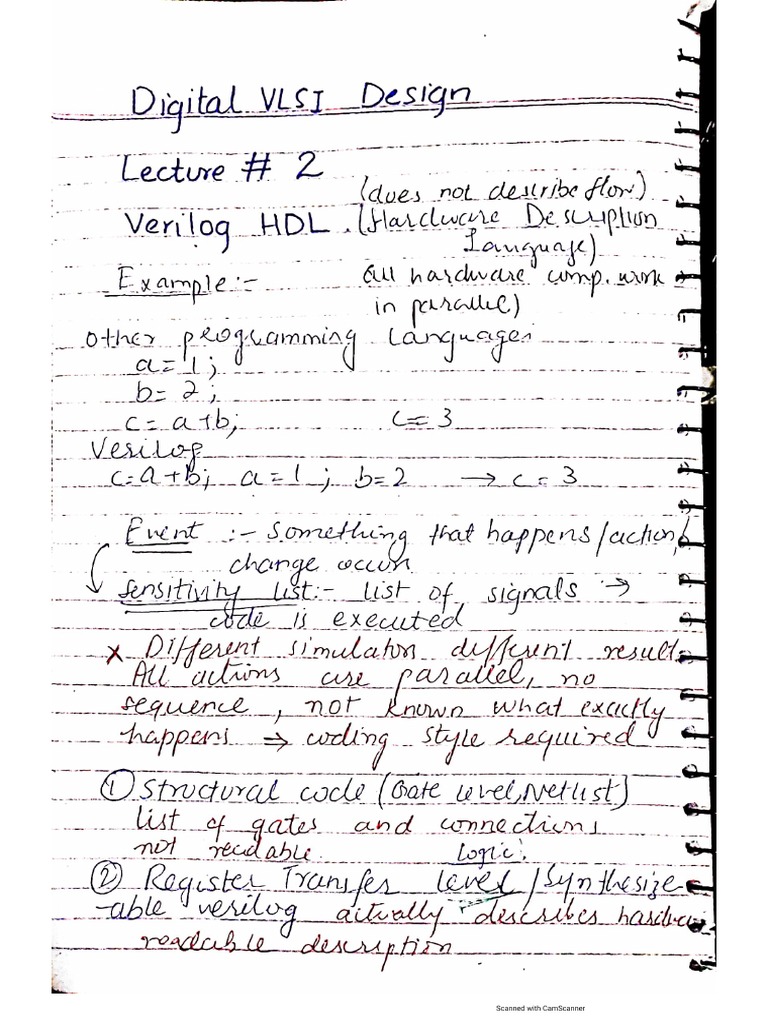 Digital VLSI Design
Lecture # 2
(does not describe flow)
Verilog HDL. (Hardware Description
Language)
Example :-
all hardware comp. work
in parallel)
Other programming Languages
a=1;
b=2;
c=a+b;
c=3
Verilog
c=a+b; a=1; b=2 → c=3
Event :- Something that happens/action,
change occurs
Sensitivity list:- list of signals →
code is executed
x Different simulators different results
All actions are parallel, no
sequence, not known what exactly
happens ⇒ coding style required
① Structural code (Gate Level, Netlist)
list of gates and connections
not readable
Logic
② Register Transfer level / Synthesize-
-able verilog actually describes hardware
readable description
Scanned with CamScanner